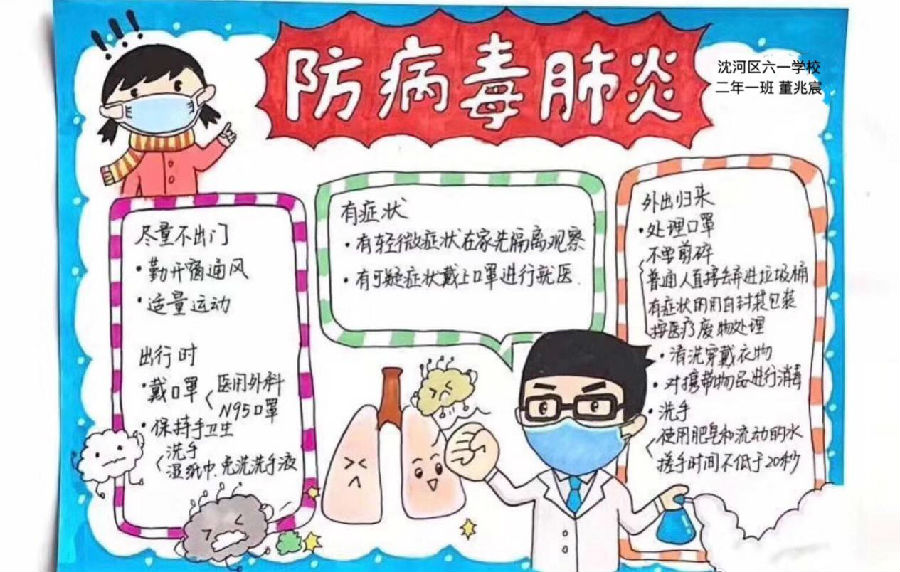 防病毒肺炎
沈河区六一学校
二年一班 董兆宸
尽量不出门
·勤开窗通风
·适量运动
出行时
·戴口罩
医用外科
N95口罩
·保持手卫生
洗手
湿纸巾,免洗洗手液
有症状
·有轻微症状在家先隔离观察
·有可疑症状戴上口罩进行就医.
外出归来
·处理口罩
不要剪碎
普通人直接丢弃进垃圾桶
有症状的用自封袋包装
按医疗废物处理
·清洗穿戴衣物
·对携带物品进行消毒
·洗手
使用肥皂和流动的水
搓手时间不低于20秒